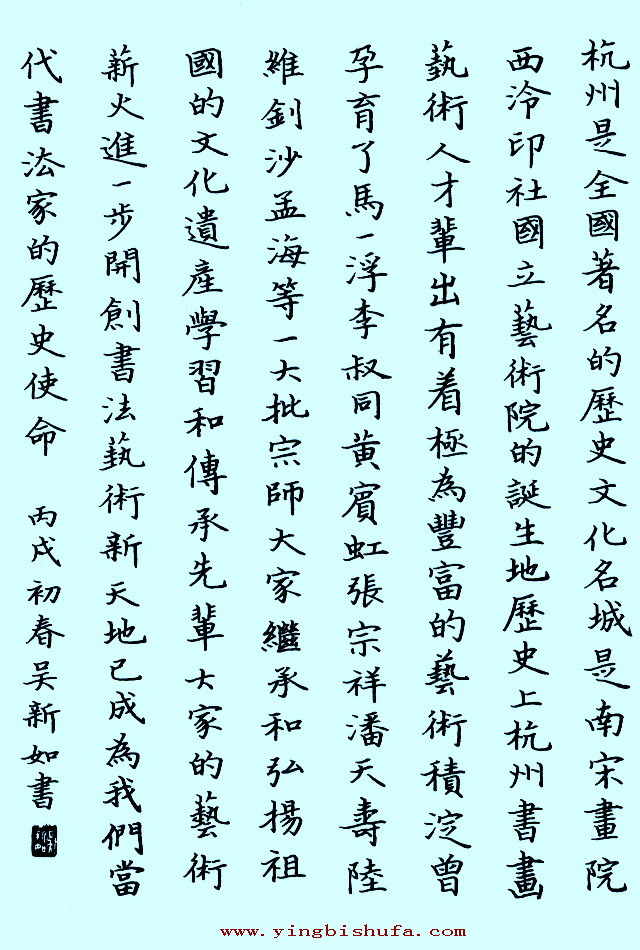 杭州是全國著名的歷史文化名城是南宋畫院
西泠印社國立藝術院的誕生地歷史上杭州書畫
藝術人才輩出有着極為豐富的藝術積淀曾
孕育了馬一浮李叔同黃賓虹張宗祥潘天壽陸
維釗沙孟海等一大批宗師大家繼承和弘揚祖
國的文化遺產學習和傳承先輩大家的藝術
薪火進一步開創書法藝術新天地已成為我們當
代書法家的歷史使命 丙戌初春吴新如書
www.yingbishufa.com